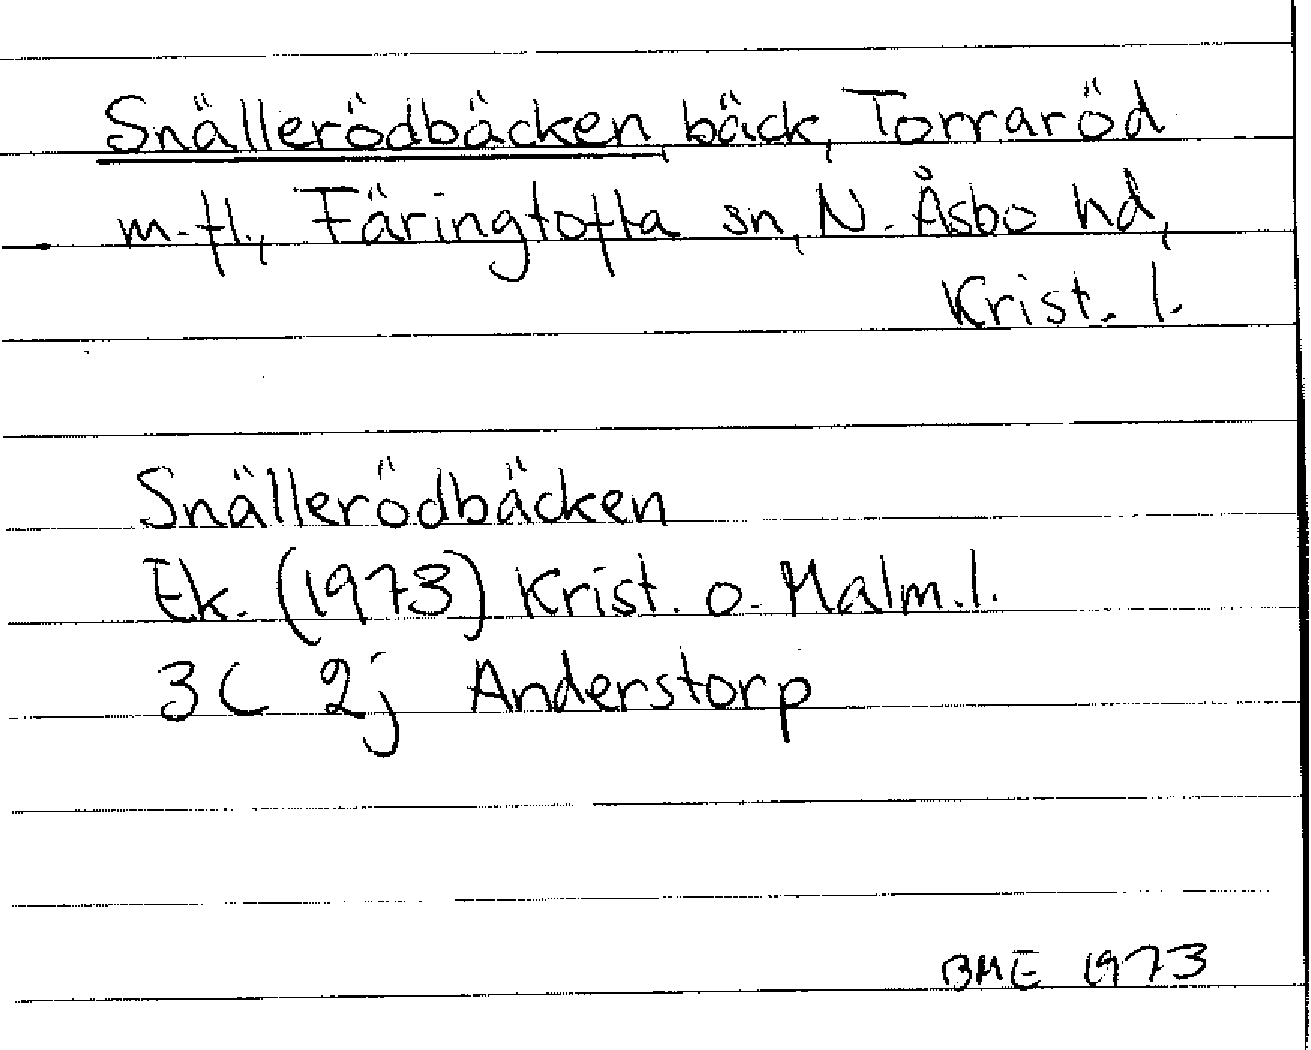 Snällerödbäcken, bäck, Torraröd
m.fl., Färingtofta sn, N. Åsbo hd,
Krist. l.
Snällerödbäcken
Ek. (1973) Krist. o. Malm. l.
3C 2j Anderstorp
BME 1973